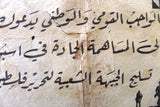 الواجب القومي والوطني يدعوك
الى المساهمة الجادة في
تسليح الجبهة الشعبية لتحرير فلسطين